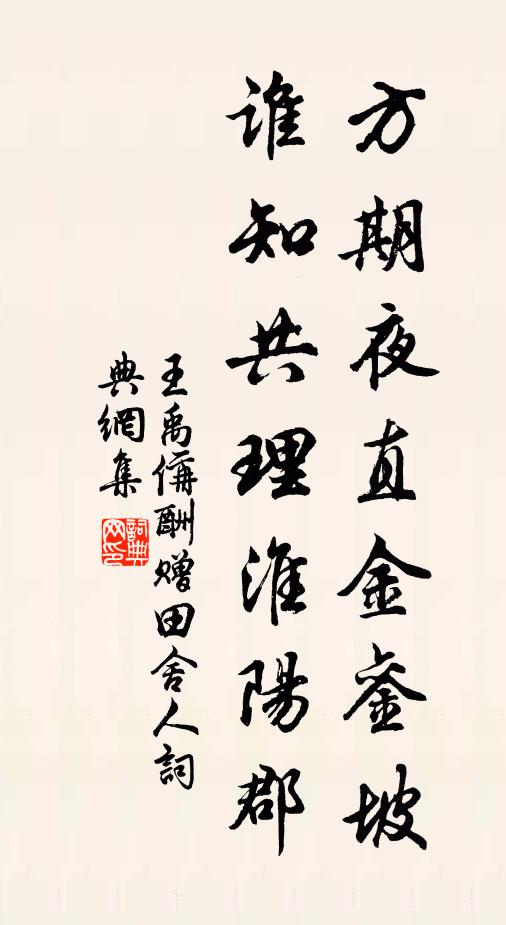 方期夜直金銮坡
谁知共理淮陽郡
王禹偁酬赠田舍人詞
典網集
詞典網印